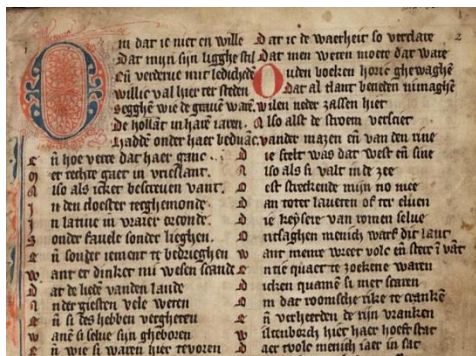 Om dat ic niet en wille
Dat mijn sijn ligghe stil
En verderue mit ledichede
Willic val hier ter steden
Segghe wie de graue ware
De hollāt in hare iaren
Hadde onder haer beduāc
Eñ hoe verre dat haer ganc
Met rechte gaet in vrieslant
Also als icker bescreuen vant
In den cloester teeghemonde
In latine in vraier orconde
Sonder fauele sonder lieghen
Eñ sonder iement te bedrieghen
Want er dinket mi wesen scande
Dat de liede vanden lande
Ander giesten vele weten
Eñ si des hebben vergheten
Wanē si selue sijn gheboren
Eñ wie si waren hier te voren
Dat ic de waerheit so verclare
Dat men weten moete dat ware
Ouden boeken horic ghewaghē
Dat al tlant beneden nimaghē
Wilen neder zassen hiet
Also alst de stroem versciet
Vander mazen eñ van den rine
Die scelt was dat west eñ sine
Also als si valt in de zee
Oost streckende mijn no mee
Dan toter lauecen of ter eluen
Die keysere van romen selue
Ontsaghen menich warf dit lant
Want mense wreet vole eñ steec i vāt
Entie quaet te zoekene waren
Dicken quamē si met scaren
Om dat roomsche rike te crankē
Eñ verheerden de rijn vranken
Wiltenborch hiet haer hoeft stat
Daer tvole menich iaer in sat